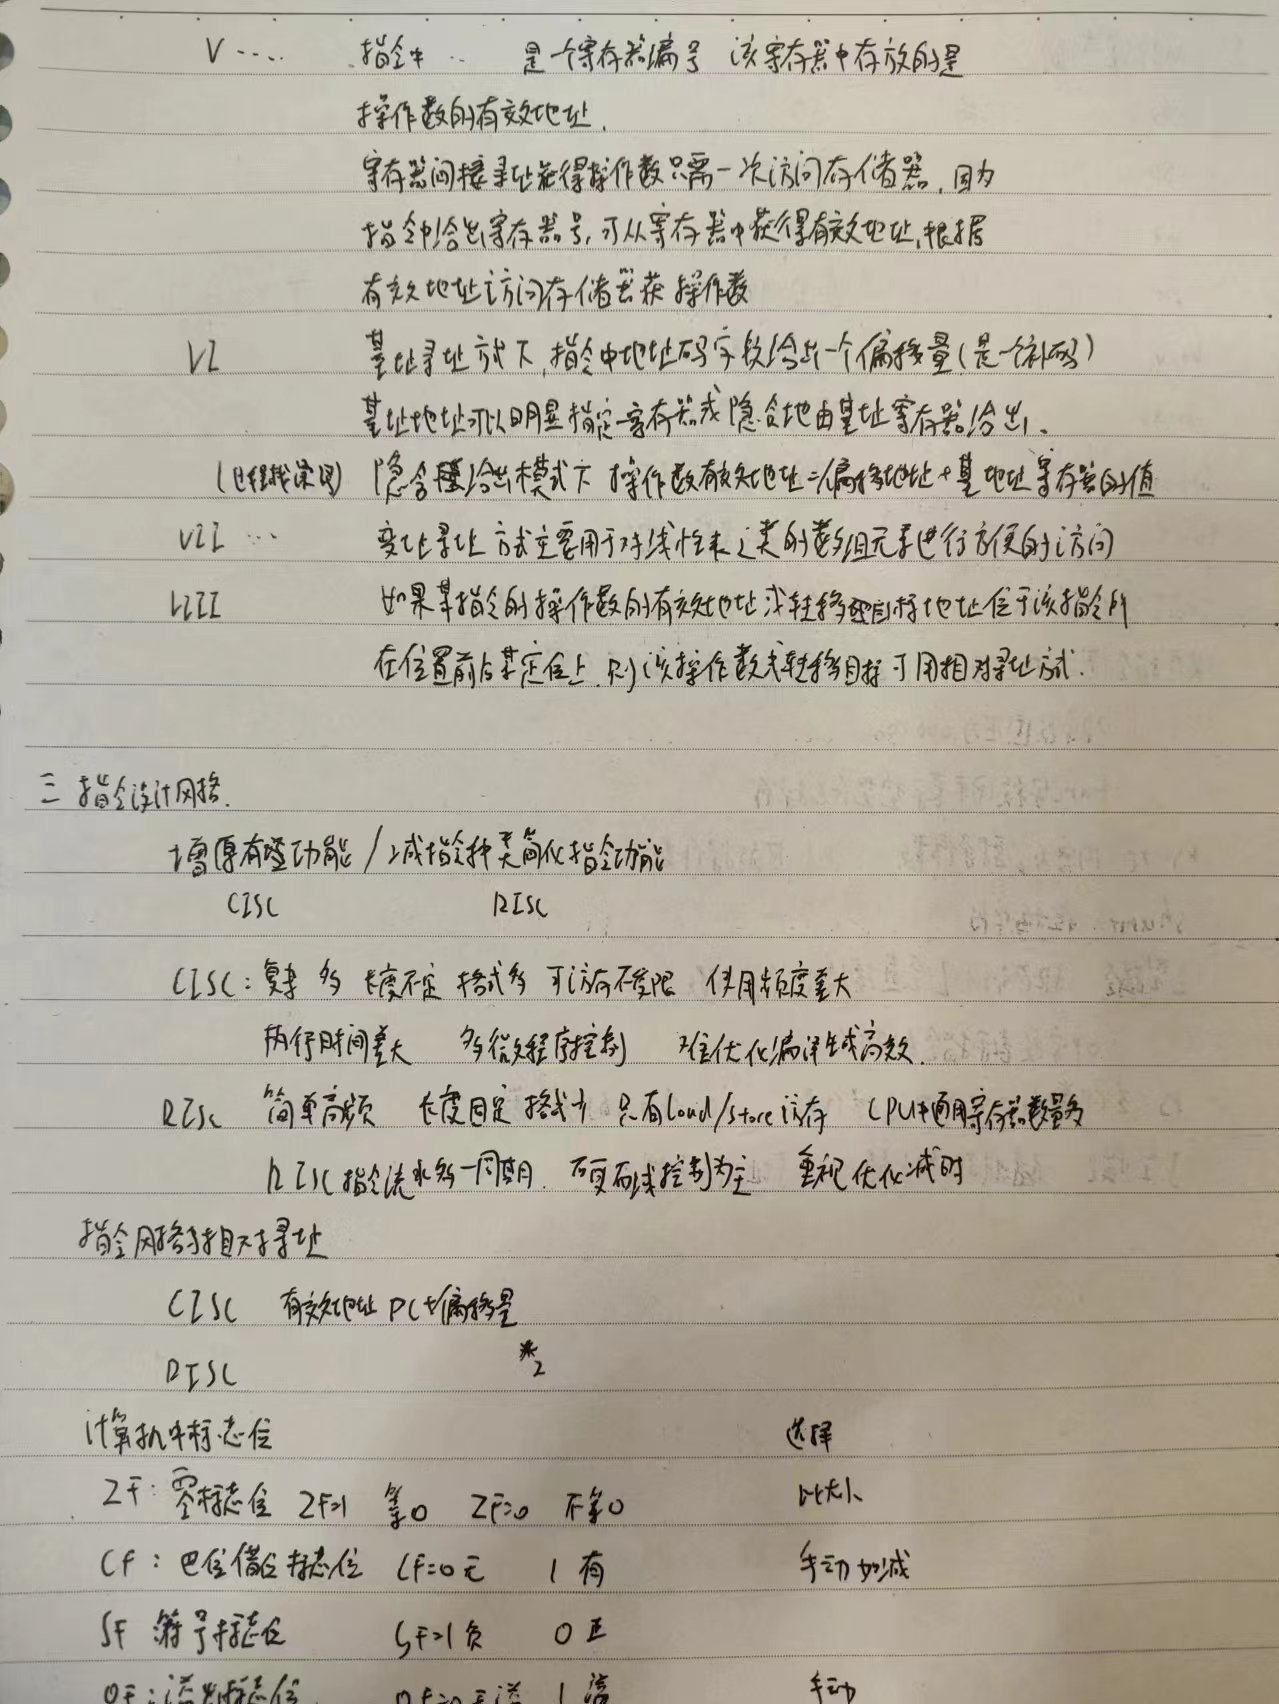 V ···· 指令中 ·· 是一个寄存器编号 该寄存器中存放的是
操作数的有效地址.
寄存器间接寻址获得操作数只需一次访问存储器,因为
指令中给出寄存器号,可从寄存器中获得有效地址,根据
有效地址访问存储器获操作数
VI 基址寻址方式下,指令中地址码字段给出一个偏移量(是一个补码)
基址地址可以明显指定寄存器或隐含地由基址寄存器给出.
隐含给出模式下 操作数有效地址=偏移地址+基地址寄存器的值
VII ··· 变址寻址方式主要用于对线性表之类的数组元素进行方便的访问
VIII 如果某指令的操作数的有效地址或转移目标地址位于该指令所
在位置前后某定位上,则该操作数或转移目标可用相对寻址方式.
三 指令设计风格.
增原有功能/减指令种类简化指令功能
CISC RISC
CISC: 复杂 多 长度不定 格式多 可访存不受限 使用频度差大
执行时间差大 多微程序控制 难优化编译生成高效.
RISC 简单高频 长度固定 格式少 只有load/store访存 CPU中通用寄存器数量多
RISC指令流水多一周期. 硬布线控制为主 重视优化减时
指令风格与相对寻址
CISC 有效地址 PC+偏移量
RISC *2
计算机中标志位 选择
ZF: 零标志位 ZF=1 等0 ZF=0 不等0 比大小
CF: 借位标志位 CF=0无 1有 手动加减
SF 符号标志位 SF=1负 0正
OF: 溢出标志位 OF=0无溢 1溢 手动